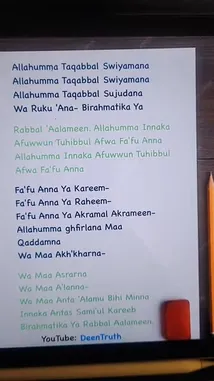 Allahumma Taqabbal Swiyamana
Allahumma Taqabbal Swiyamana
Allahumma Taqabbal Sujudana
Wa Ruku 'Ana- Birahmatika Ya
Rabbal 'Aalameen. Allahumma Innaka
Afuwwun Tuhibbul Afwa Fa'fu Anna
Allahumma Innaka Afuwwun Tuhibbul
Afwa Fa'fu Anna
Fa'fu Anna Ya Kareem-
Fa'fu Anna Ya Raheem-
Fa'fu Anna Ya Akramal Akrameen-
Allahumma ghfirlana Maa
Qaddamna
Wa Maa Akh'kharna-
Wa Maa Asrarna
Wa Maa A'lanna-
Wa Maa Anta 'Alamu Bihi Minna
Inneka Antas Sami'ul Kareeb
Birahmatika Ya Rabbal Aalameen.
YouTube: DeenTruth